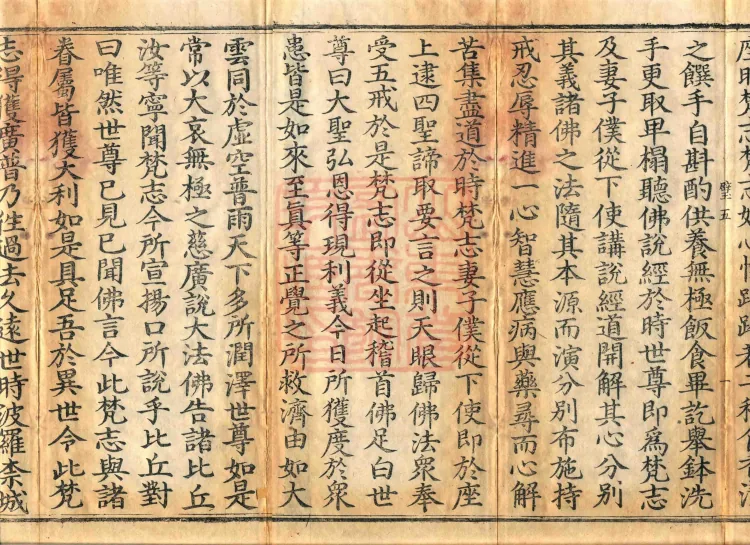 璧五
之饌手自斟酌供養無極飯食畢訖舉鉢洗
手更取卑榻聽佛說經於時世尊即為梵志
及妻子僕從下使講說經道開解其心分別
其義諸佛之法隨其本源而演分別布施持
戒忍辱精進一心智慧應病與藥尋而心解
苦集盡道於時梵志妻子僕從下使即於座
上逮四聖諦取要言之則天眼歸佛法眾奉
受五戒於是梵志即從坐起稽首佛足白世
尊曰大聖弘恩得現利義今日所獲度於眾
患皆是如來至真等正覺之所救濟由如大
雲同於虛空普雨天下多所潤澤世尊如是
常以大哀無極之慈廣說大法佛告諸比丘
汝等寧聞梵志今所宣揚口所說乎比丘對
曰唯然世尊已見已聞佛言今此梵志與諸
眷屬皆獲大利如是具足吾於異世今此梵
志得獲廣普乃往過去久遠世時波羅柰城